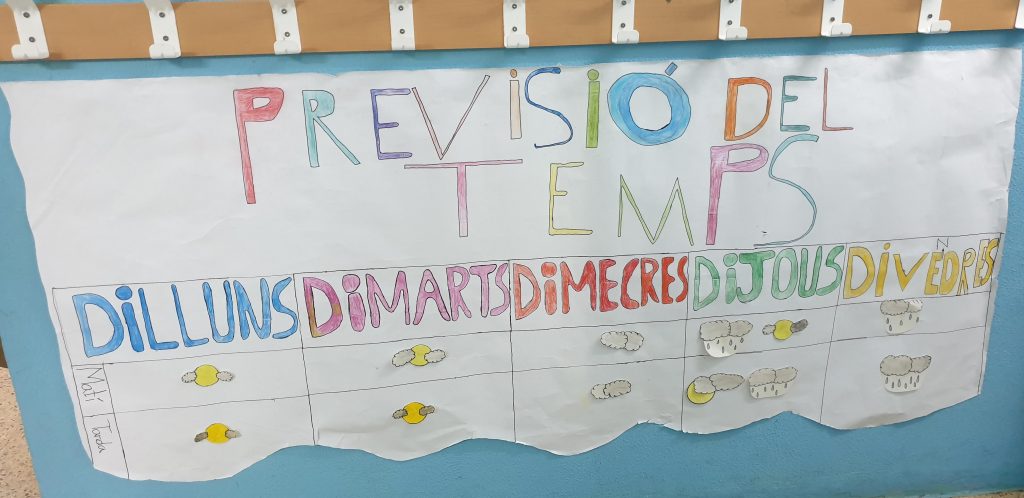 PREViSiÓ DEL
TEMPS
DiLLUNS DiMARTS DiMECRES DiJOUS DiVENDRES
Matí
Tarda